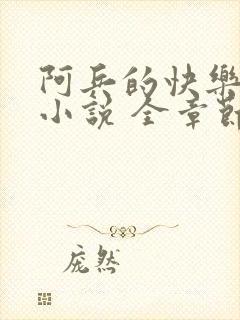 阿兵的快樂
小說 全章節
庞然